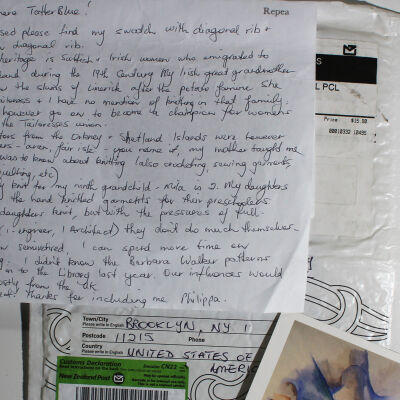 here TatterBlue!
Repea
sed please find my swatch with diagonal rib +
n diagonal rib.
heritage is Scottish + Irish women who emigrated to
land during the 19th Century. My Irish great grandmother
the slums of Limerick after the potato famine. She
+ I have no mention of knitting in that family.
however go on to become a champion for women's
the Tailoresses union.
tors from the Orkney + Shetland Islands were however
ers - aran, fair isle - you name it, my mother taught me
was to know about knitting (also crocheting, sewing garments,
quilting, etc)
y knit for my ninth grandchild - Mila is 2. My daughters
the hand knitted garments for their preschoolers
daughters knit, but with the pressures of full-
1 engineer, 1 Architect) they don't do much themselves.
semiretired, I can spend more time on
g. I didn't know the Barbara Walker patterns
in to the Library last year. Our influences would
ostly from the UK.
Thanks for including me Philippa.
S
PCL
Price: $15.00
Town/City
Please write in English
BROOKLYN, NY 1
Postcode
Please write in English
11215
Phone
Country
Please write in English
UNITED STATES OF
AMERIC
Customs Declaration
CN22
New Zealand Post